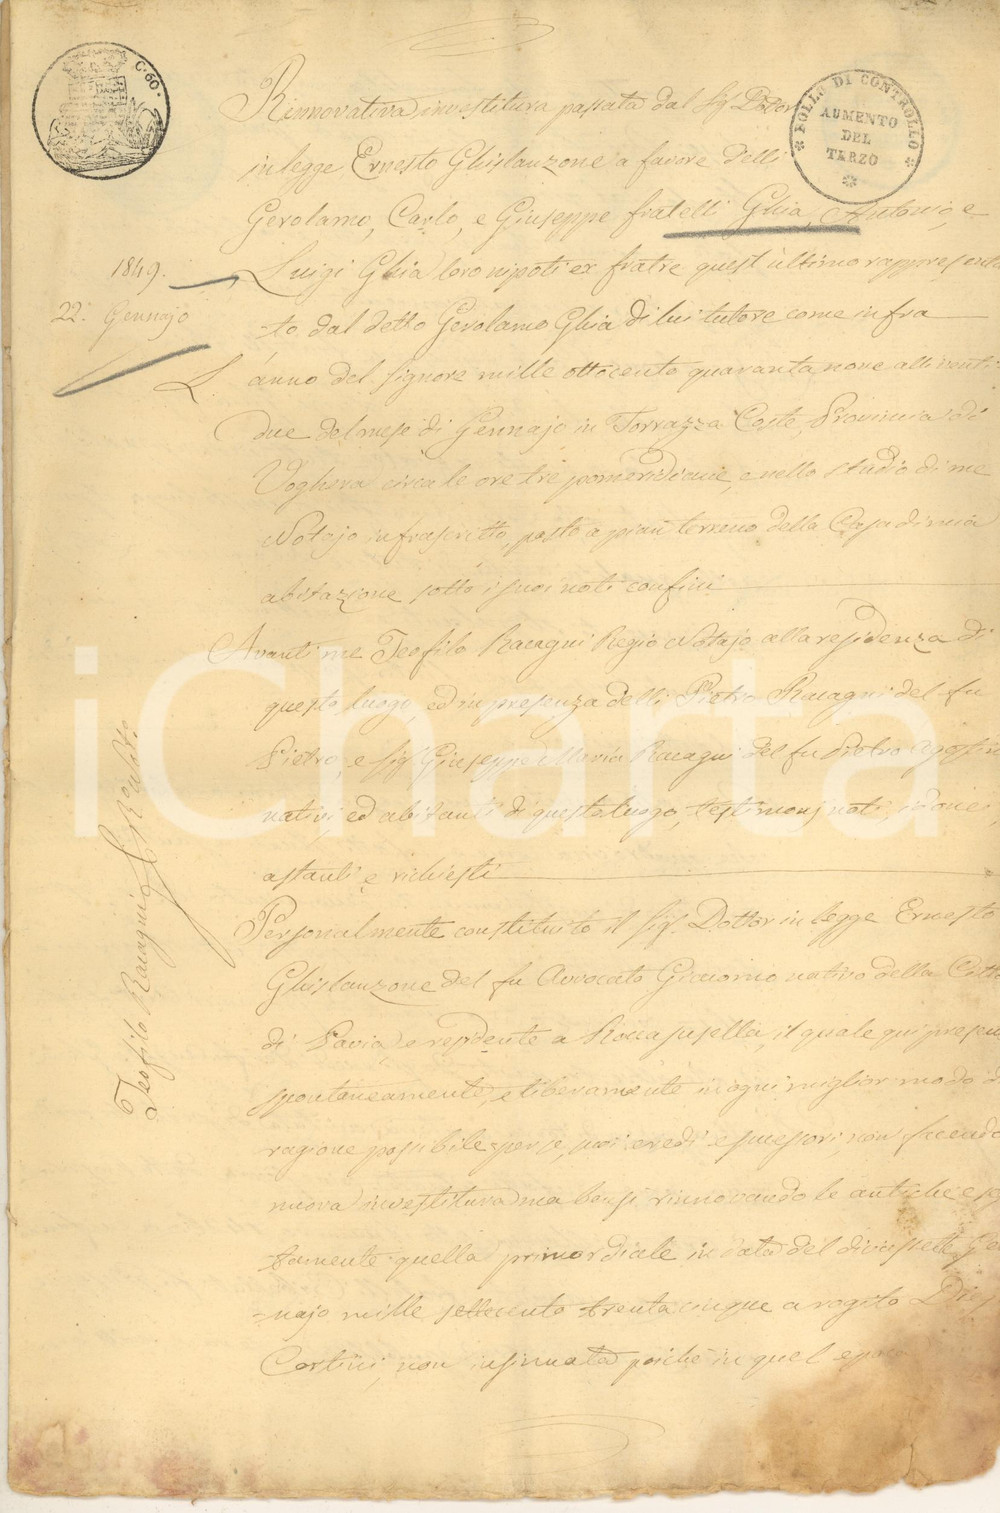 C. 60.
BOLLO DI CONTROLLO
AUMENTO
DEL
TERZO
Rinnovativa investitura passata dal Sig. Dottor
in legge Ernesto Ghislanzone a favore delli
Gerolamo, Carlo, e Giuseppe fratelli Ghia, Antonio, e
Luigi Ghia loro nipoti ex fratre quest'ultimo rappresenta
to dal detto Gerolamo Ghia di lui tutore come infra
1849.
22. Gennajo
L'anno del Signore mille ottocento quaranta nove alli venti
due del mese di Gennajo in Torrazza Coste, Provincia di
Voghera circa le ore tre pomeridiane, e nello studio di me
Notajo infrascritto, posto a pian terreno della Casa di mia
abitazione sotto i suoi noti confini
Avanti me Teofilo Racagni Regio Notajo alla residenza di
questo luogo, ed in presenza delli Pietro Racagni del fu
Pietro, e Sig. Giuseppe Maria Racagni del fu Pietro Agostino
nativi, ed abitanti di questo luogo, testimonj noti, idonei,
astanti e richiesti
Personalmente constituito il Sig. Dottor in legge Ernesto
Ghislanzone del fu Avvocato Giacomo nativo della Città
di Pavia, e residente a Roccasusella, il quale qui presen
spontaneamente, e liberamente in ogni miglior modo di
ragione possibile per se, suoi eredi e successori, non facendo
nuova investitura ma bensì rinnovando le antiche e se
tamente quella primordiale in data del diciassette Gen
najo mille settecento trenta cinque a rogito
Cortini, non insinuata poichè in quel epoca
Teofilo Racagni R.º Not.º
iCharta